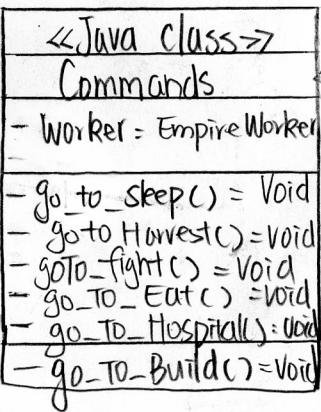 <<Java class>>
Commands
- Worker = EmpireWorker
- go_to_sleep() = Void
- goto Harvest() = void
- goTo_fight() = Void
- go_To_Eat() = void
- go_To_Hospital() = void
- go_To_Build() = Void